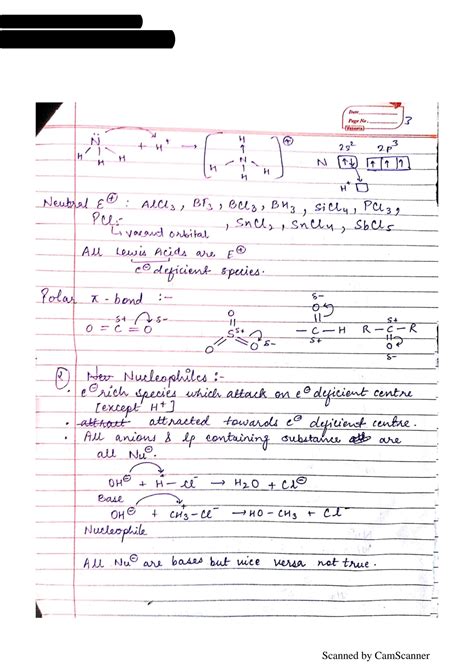 Date
Page No. 3
N̈ + H⁺ → [H N H H H]⊕ 2s² 2p³
H H H N ↑↓ ↑ ↑ ↑
H⁺
Neutral E⊕ : AlCl3, BF3, BCl3, BH3, SiCl4, PCl3,
PCl5, SnCl2, SnCl4, SbCl5
↳ vacant orbital
All Lewis Acids are E⊕
e⊖ deficient species.
Polar π-bond :-
δ+ δ- O δ- O δ+
O = C = O S δ+ - C - H R - C - R
O O δ- δ+ O δ-
② Nucleophiles :-
• e⊖ rich species which attack on e⊖ deficient centre
[except H⁺]
• attract attracted towards e⊖ deficient centre.
• All anions & lp containing substance are
all Nu⊖.
OH⊖ + H - Cl⁻ → H2O + Cl⊖
Base
OH⊖ + CH3 - Cl⁻ → HO - CH3 + Cl⁻
Nucleophile
All Nu⊖ are bases but vice versa not true.
Scanned by CamScanner